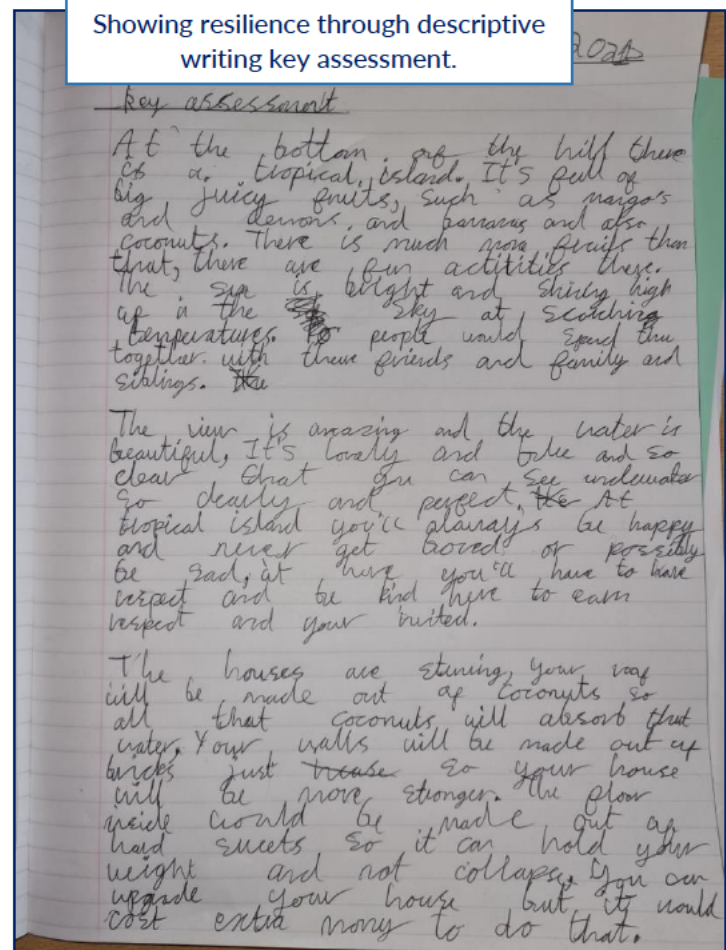 Showing resilience through descriptive
writing key assessment.
key assessment
At the bottom of the hill there
is a tropical island. It's full of
big juicy fruits, such as mango's
and and bananas and also
coconuts. There is much more fruits than
that, there are fun actitities there.
The sun is bright and shining high
up in the sky at scorching
temperatures. people would spend
together with there friends and family and
siblings. The
The view is amazing and the water is
beautiful, It's lovely and blue and so
clear that you can see underwater
so clearly and perfect. The At
tropical island you'll always be happy
and never get bored or possibly
be sad, at here you'll have to have
respect and be kind here to earn
respect and your invited.
The houses are stuning, your roof
will be made out of coconuts so
all that coconuts will absorb that
water. Your walls will be made out of
bricks just so your house
will be more stronger. The floor
inside would be made out of
hard sweets so it can hold your
weight and not collapse. You can
upgrade your house but it would
cost extra mony to do that.